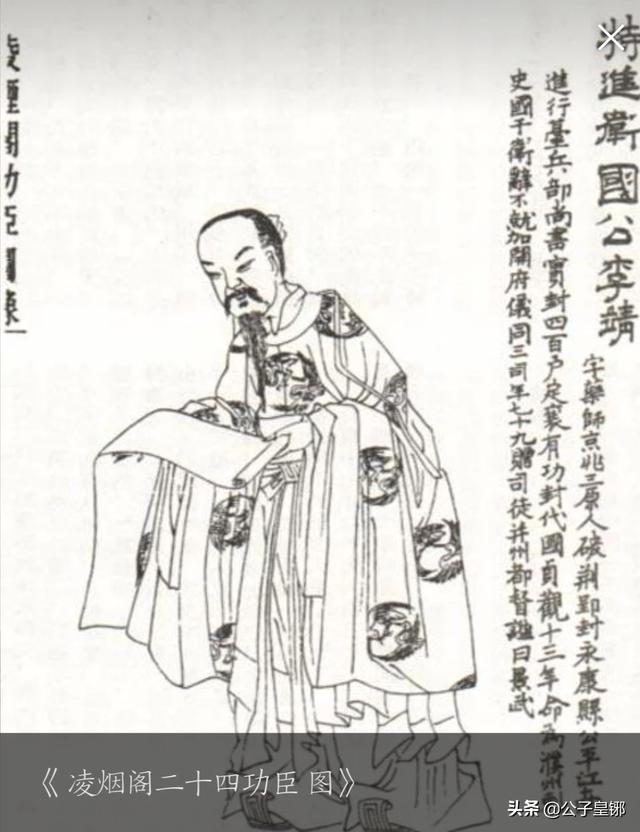 特進衛國公李靖
字藥師京兆三原人破荆郢封永康縣公平江
進行臺兵部尚書實封四百户定襄有功封代國貞觀十三年命為濮州
史國于衛辭不就加開府儀同三司年七十九贈司徒并州都督謚曰景武
凌煙閣功臣圖像一
《 凌烟阁二十四功臣 图》
头条 @公子皇铘